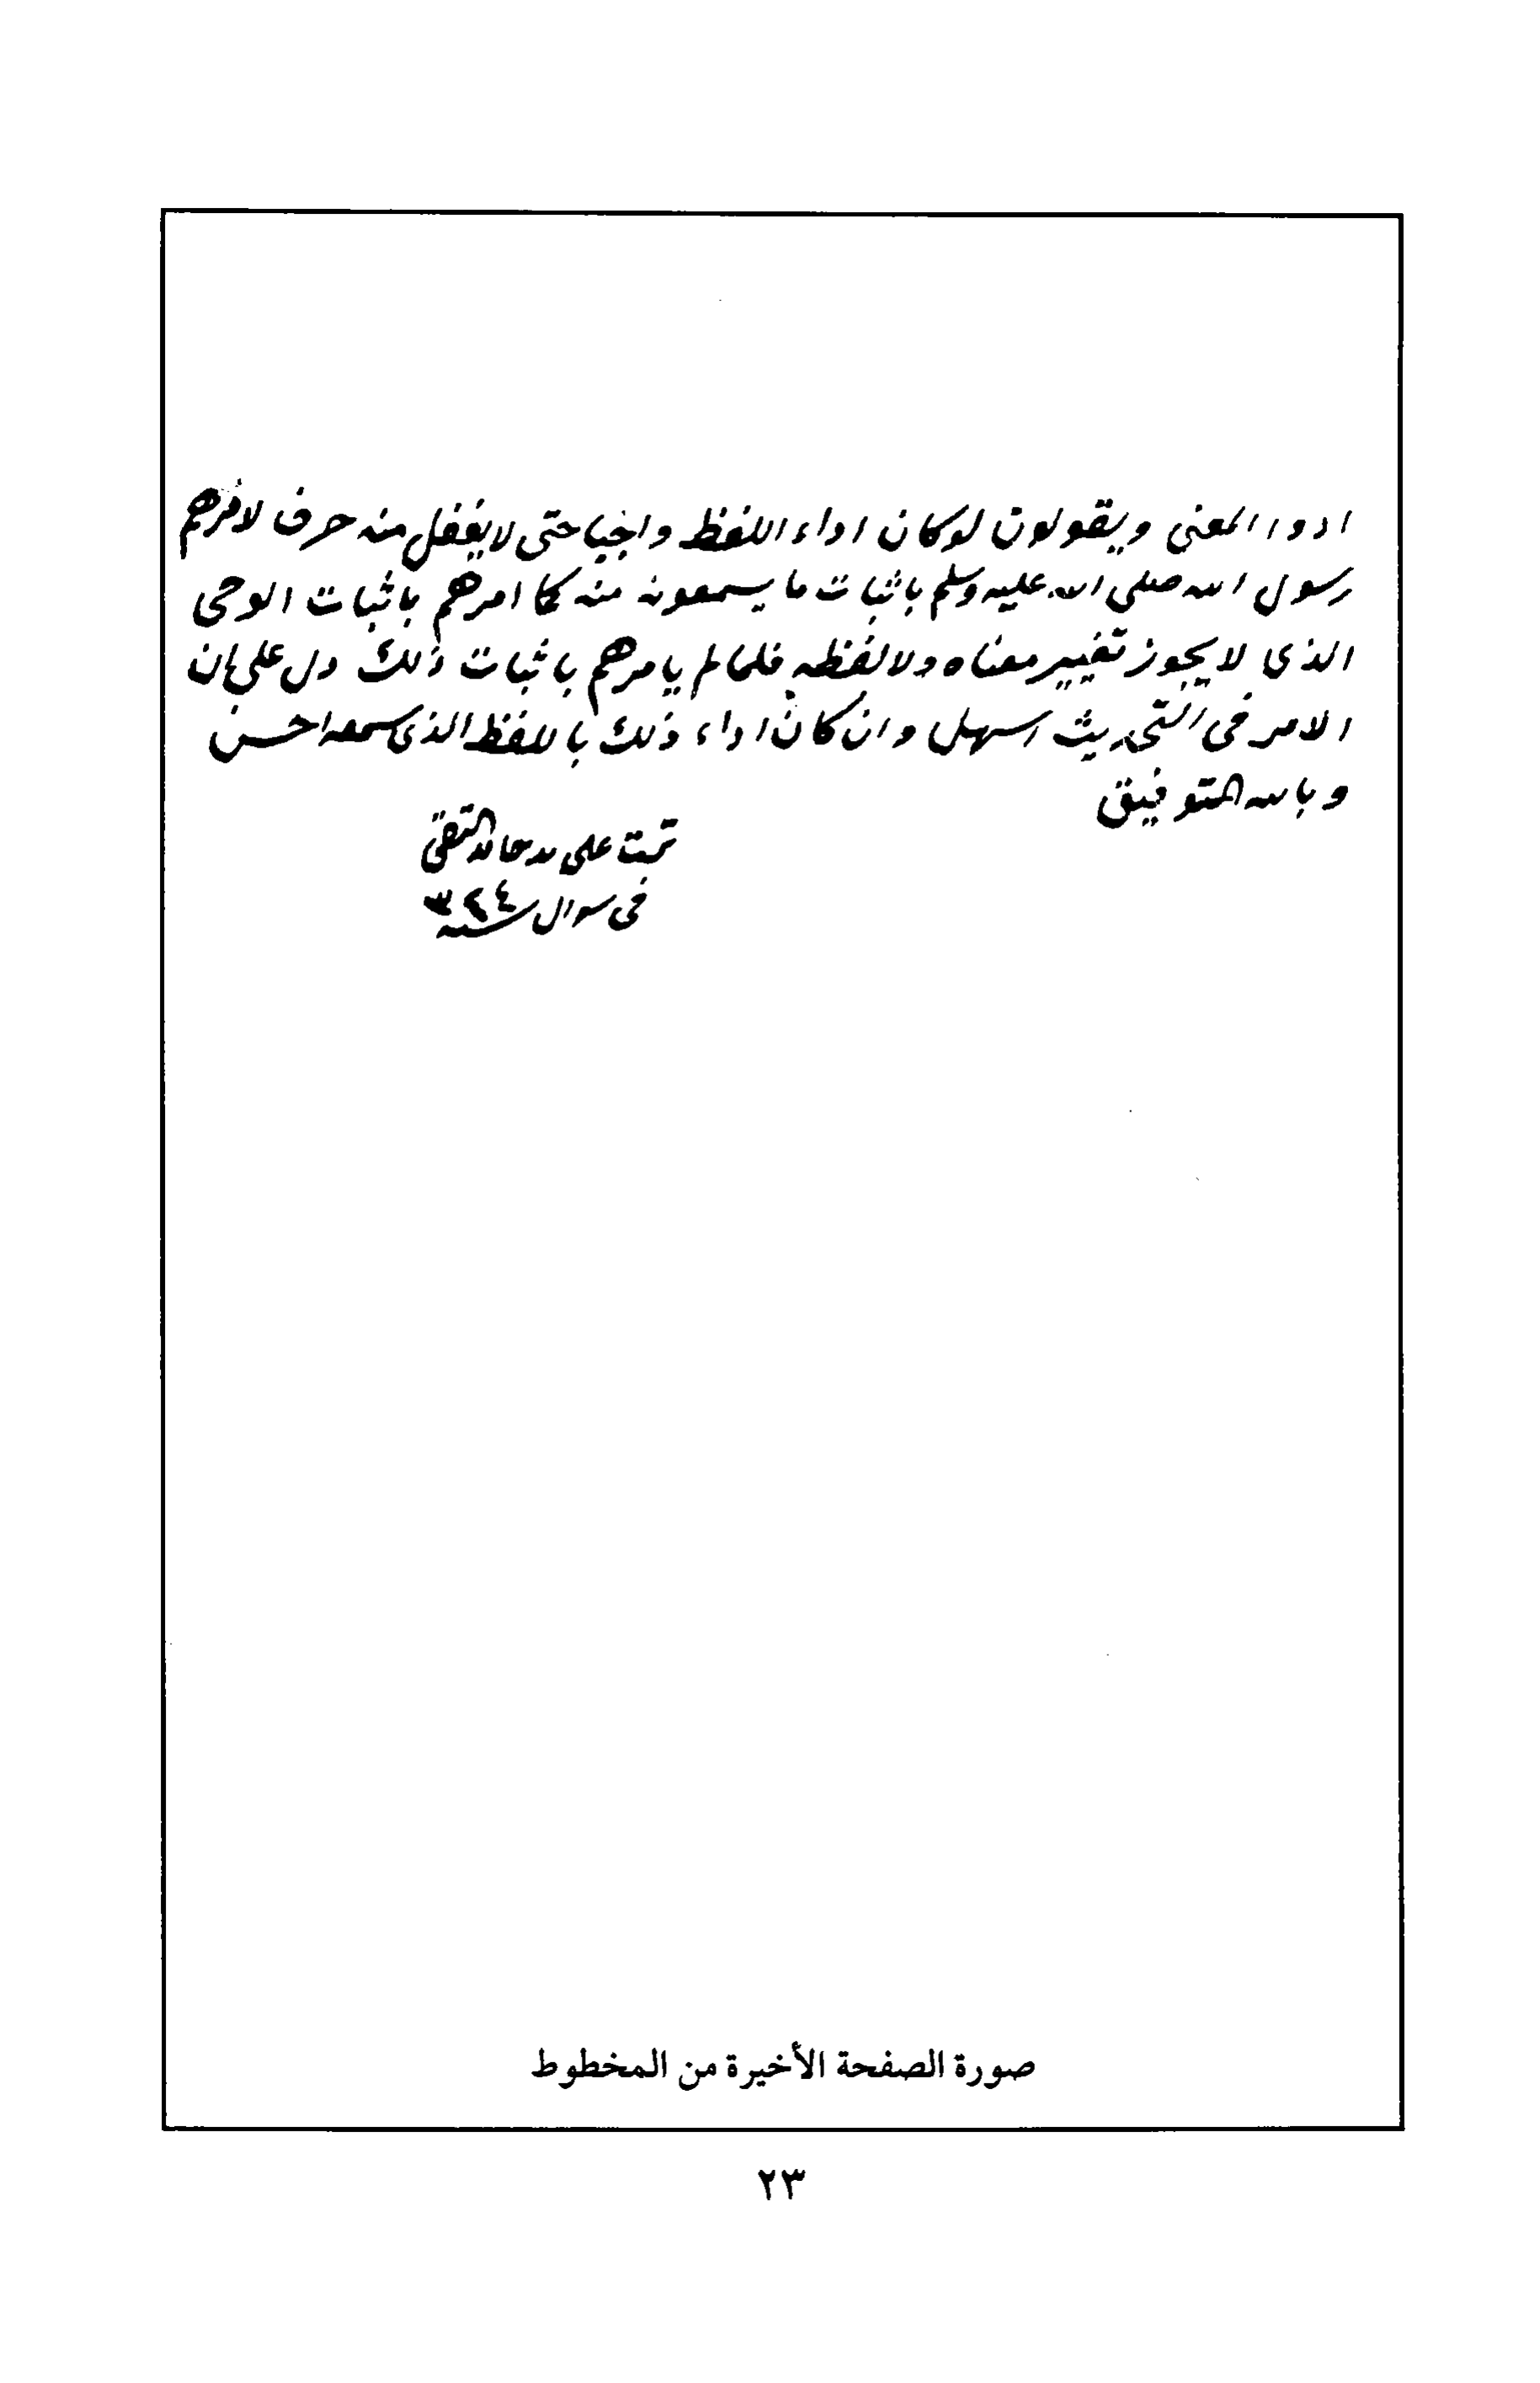 ادوا المعنى ويقولون لو كان اداء اللفظ واجبا حتى لا يغفل منه حرف لامرهم
رسول الله صلى الله عليه وسلم باثبات ما يسمعونه منه كما امرهم باثبات الوحى
الذى لا يجوز تغيير معناه ولا لفظه فلما لم يامرهم باثبات ذلك دل على ان
الامر فى التحديث اسهل وان كان اداء ذلك باللفظ الذى سمعه احسن
وبالله التوفيق
تمت على يد حامد التقى
فى سوال سنة ٣٤٤
صورة الصفحة الأخيرة من المخطوط
٢٣